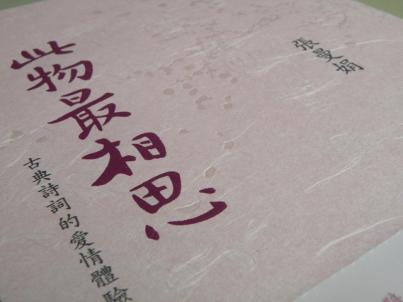 張曼娟
此物最相思
古典詩詞的愛情體驗